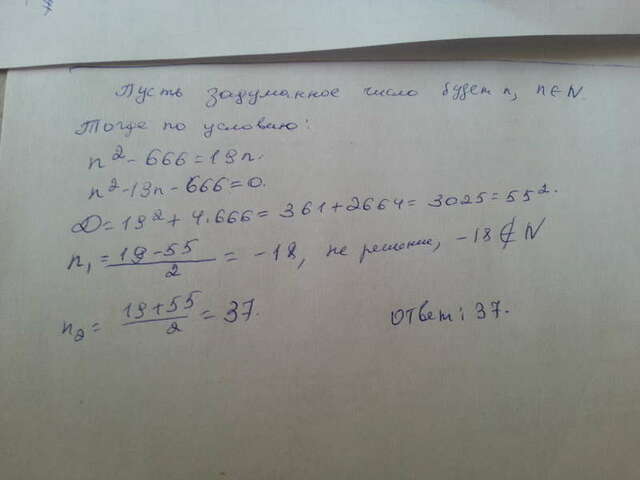 Пусть задуманное число будет n, n∈N.
Тогда по условию:
n²-666=19n.
n²-19n-666=0.
D=19²+4·666=361+2664=3025=55².
n₁=(19-55)/2=-18, не решение, -18∉N
n₂=(19+55)/2=37.
Ответ: 37.